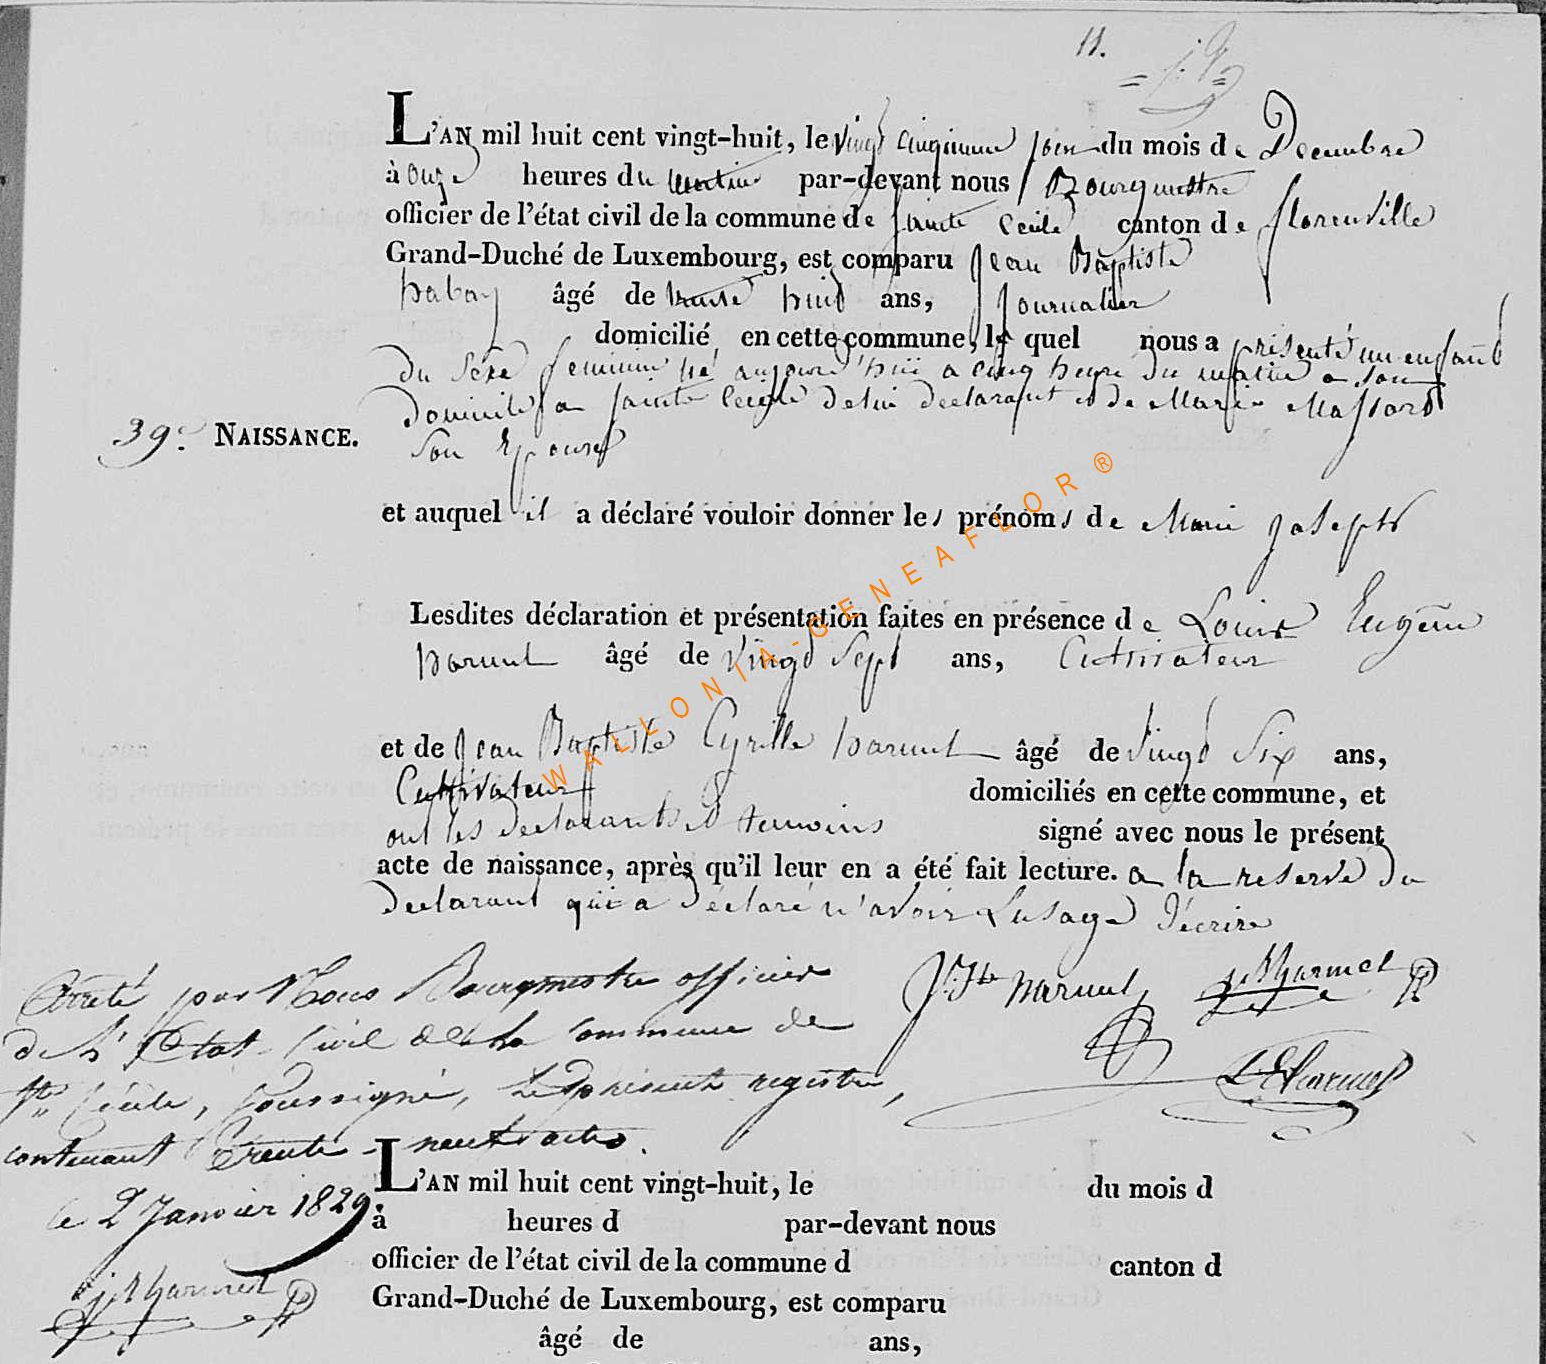 11.
L'AN mil huit cent vingt-huit, le vingt cinquieme jour du mois de Decembre
à onze heures du matin par-devant nous Bourgmestre
officier de l'état civil de la commune de Sainte Cecile canton de florenville
Grand-Duché de Luxembourg, est comparu Jean Baptiste
habay âgé de trente huit ans, Journalier
domicilié en cette commune, le quel nous a présenté un enfant
du sexe feminin né aujourd'hui a cinq heure du matin a son
domicile a Sainte Cecile de lui declarant et de Marie Massard
son Epouse
39e. NAISSANCE.
et auquel il a déclaré vouloir donner les prénoms de Marie Joseph
Lesdites déclaration et présentation faites en présence de Louis Eugene
harmel âgé de vingt sept ans, Cultivateur
et de Jean Baptiste Cyrille harmel âgé de vingt six ans,
Cultivateur domiciliés en cette commune, et
ont les declarants et temoins signé avec nous le présent
acte de naissance, après qu'il leur en a été fait lecture. a la reserve du
declarant qui a déclaré n'avoir l'usage d'écrire
J. Bte harmel JB harmel
L E harmel
Arreté par Nous Bourgmestre officier
de l'Etat Civil de la Commune de
Ste Cécile, soussigné, le présent registre,
contenant trente-neuf actes.
le 2 Janvier 1829.
JB harmel
L'AN mil huit cent vingt-huit, le du mois d
à heures d par-devant nous
officier de l'état civil de la commune d canton d
Grand-Duché de Luxembourg, est comparu
âgé de ans,
WALLONIA-GENEAFLOR®